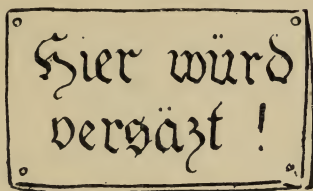 Hier würd
versäzt !